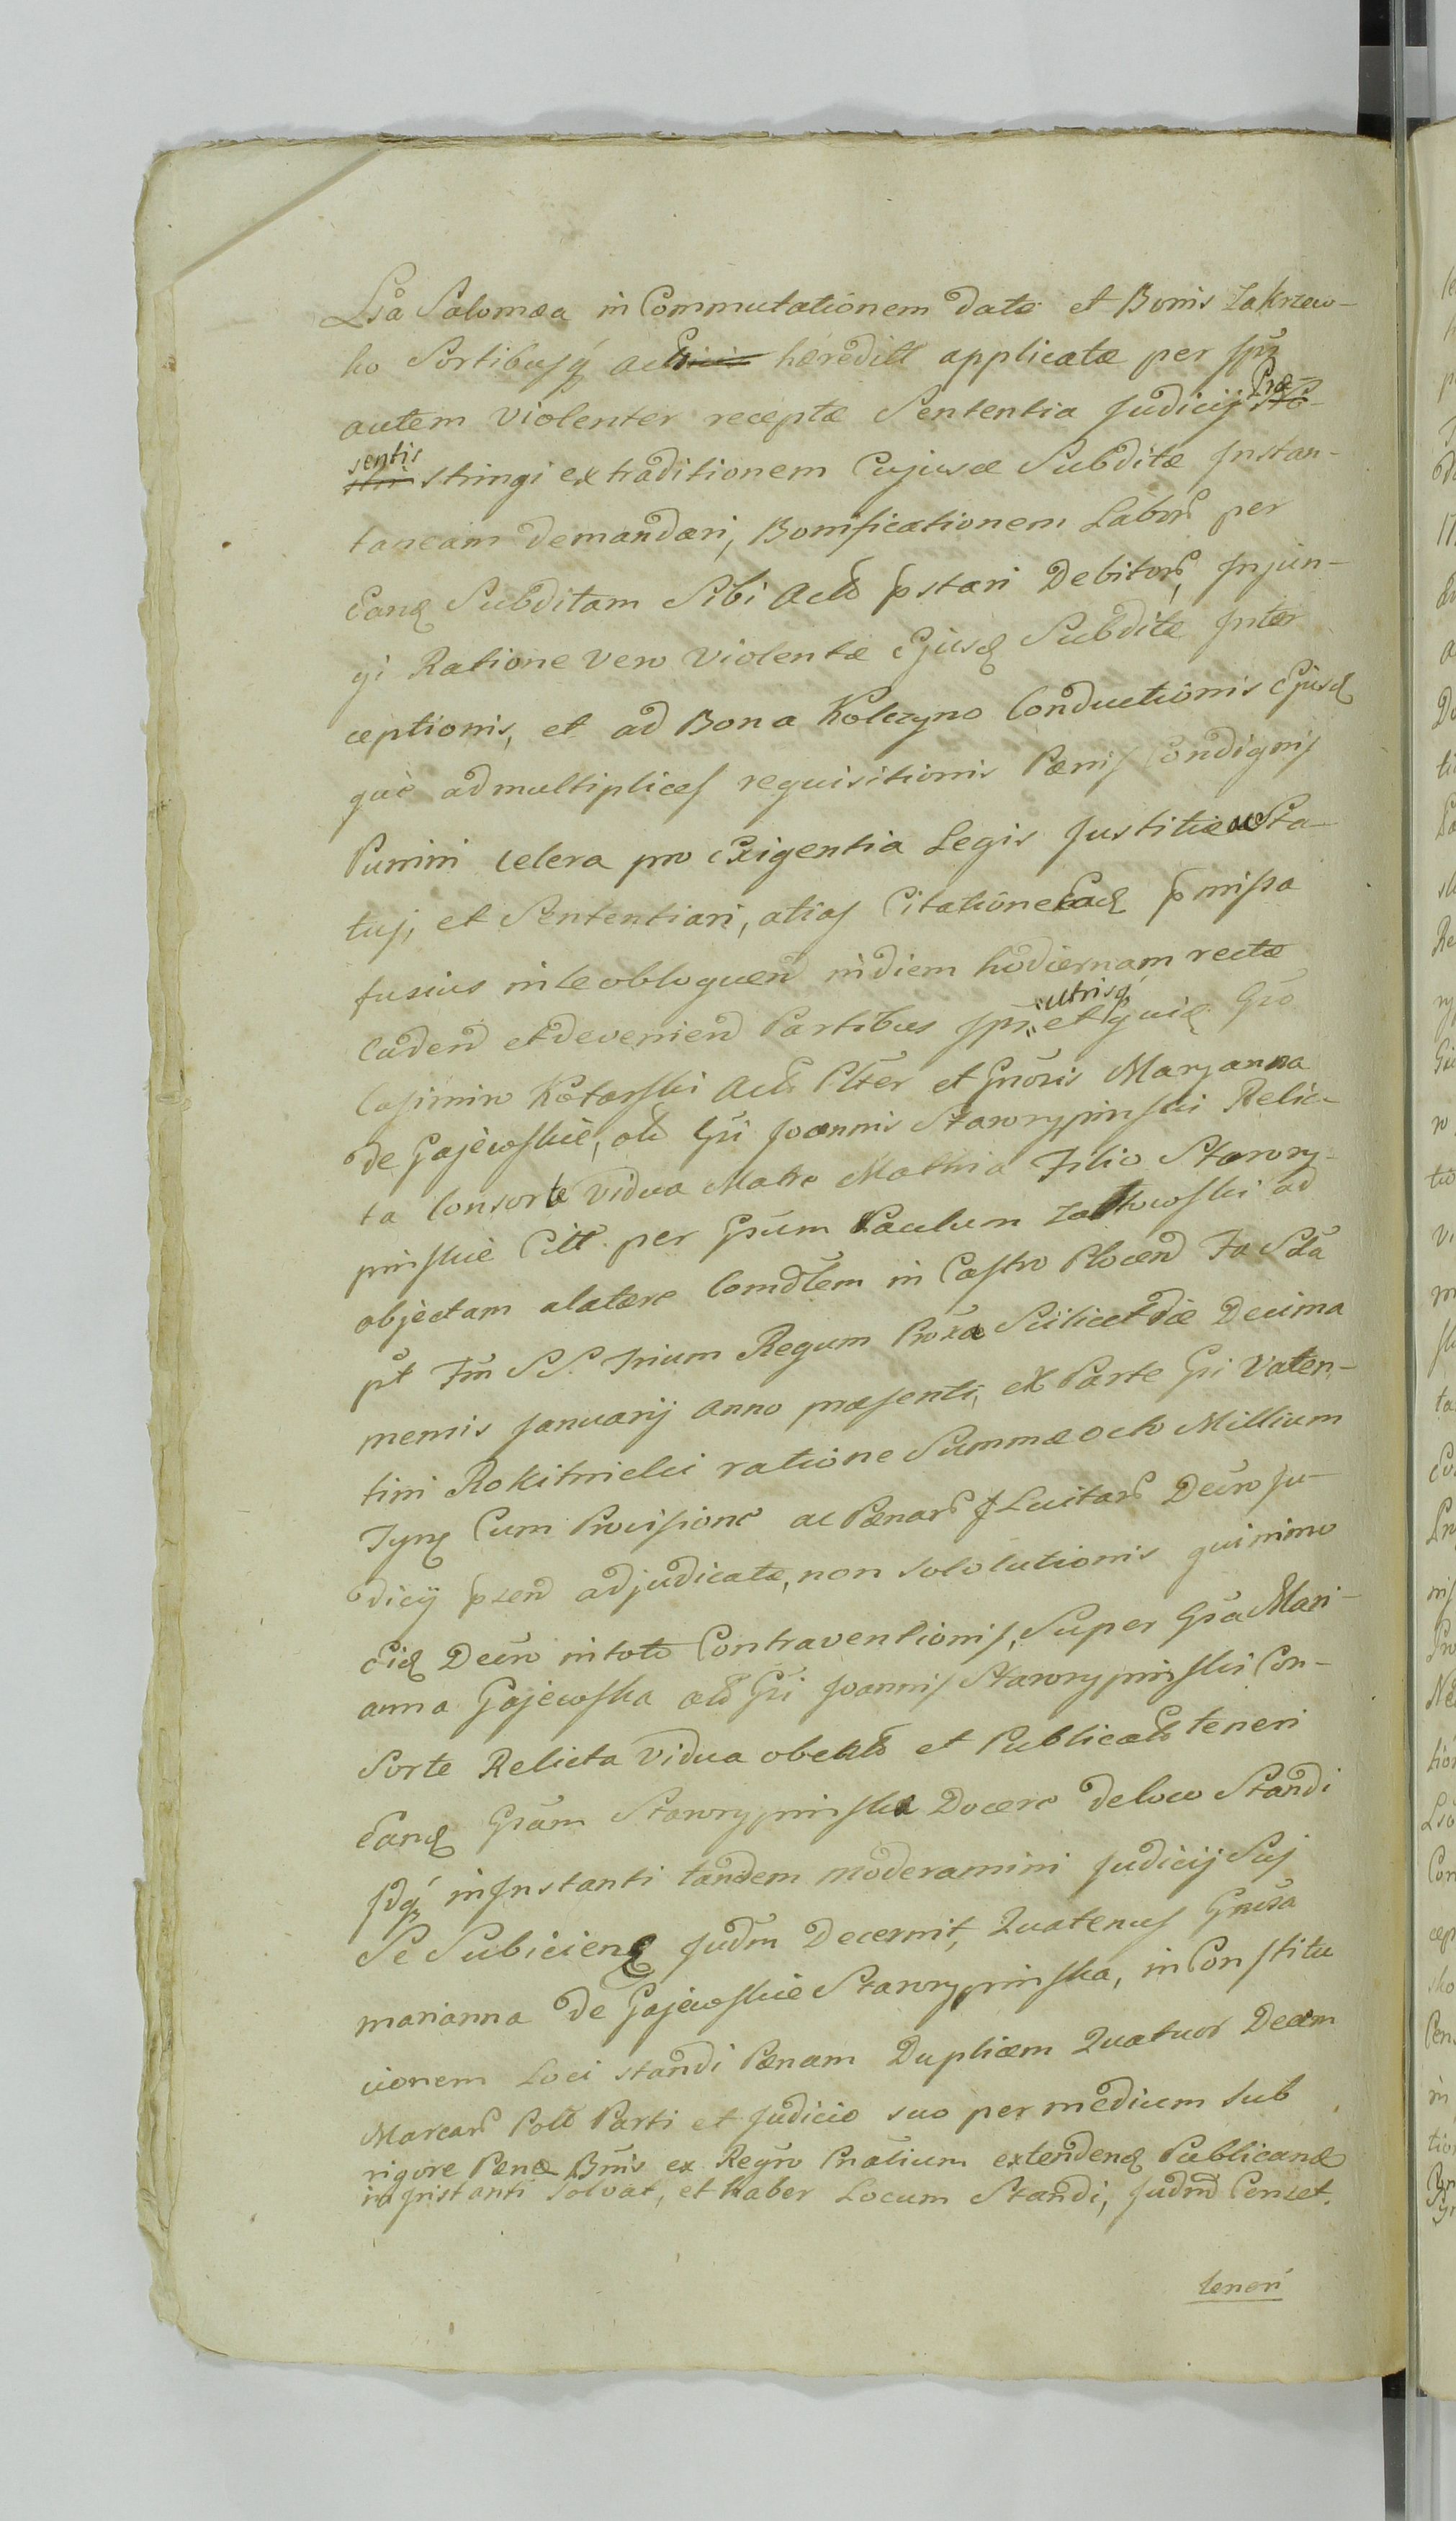 Lsa Salomæa in Commutationem data et Bonis Zakrzew-
ko Sortibusq́ hæreditt applicatæ per Ipsz
autem violenter receptæ Sententia Judicij Præ-
sentis stringi extraditionem Cujusæ Subditæ Instan-
taneam demandari, Bonificationem Labor per
Eand Subditam Sibi Acto pstari Debitor, Injun-
gi Ratione vero violentæ Ejusd Subditæ Inter
ceptionis, et ad Bona Kolczyno Conductionis Ejusd
què ad multiplices requisitionis Pœnis Condignis
Puniri celera pro Exigentia Legis Justitiæ ac Sta-
tuj, et Sententiari, alias Citatione Ead pmissa
fusius inle obloquen in diem hodiernam recte
Caden et devenien Partibus Ips utrisq́ et quid Gso
Casimiro Kotarski Act Plter et Gnosis Maryanna
de Gajewskie, olt Gsi Joannis Staworypinski Relic-
ta Consorte vidua Matre Mathia Filio Stawory-
pinskie Citt per Gsum Paulum Zottowski ad
objectam alatere Comdtem in Castro Plocen Fa Sda
pt Fm SS. Trium Regum Proxa Scilicet die Decima
mensis Januarij anno præsenti, ex Parte Gsi Valen-
tini Rokitnicki ratione Summæ octo Millium
Tynf Cum Provisione ac Pœnar Lucitar Decro Ju-
dicij pzen adjudicatæ, non sololutionis quinimo
Eid Decro intoto Contraventionis, Super Gsa Mari-
anna Gajewska olt Gsi Joannis Staworypinski Con-
Sorte Relicta Vidua obento et Publicato teneri
Eand Gsam Staworypinska Docere deloco Standi
Idq́ in Instanti tandem moderamini Judicij Suj
Se Subicien Judm Decernit, Quatenus Gnosa
marianna de Gajewskie Staworypinska, in Constitu
cionem Loci standi Pœnam Duplicem Quatuor Decem
Marcar Poll Parti et Judicio suo per medium sub
rigore Pœnæ Bnis ex Regro Pnatium extenden Publicand
in Instanti Solvat, et haber Locum Standi, Judm Censet.
teneri